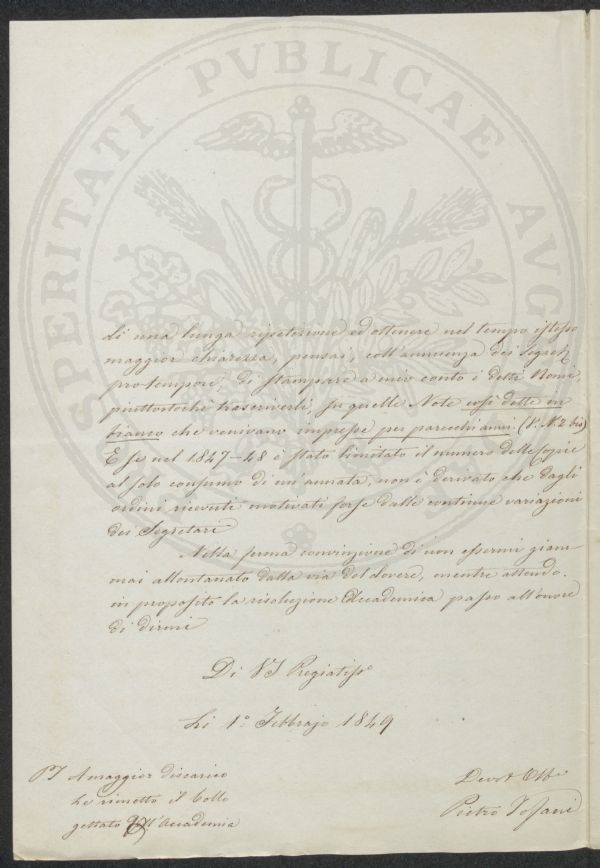 PROSPERITATI PVBLICAE AVG
di una lunga ripetizione ed ottenere nel tempo istesso
maggior chiarezza, pensai, coll'annuenza dei Segret.
pro-tempore, di stampare a mio conto i detti Nomi,
piuttostochè trascriverli, su quelle Note così dette in
bianco che venivano impresse per parecchi anni. (V. N. 2 bis)
E se nel 1847-48 è stato limitato il numero delle copie
al solo consumo di un'annata, non è derivato che dagli
ordini ricevuti motivati forse dalle continue variazioni
dei Segretari
Nella ferma convinzione di non essermi giam-
mai allontanato dalla via del dovere, mentre attendo
in proposito la risoluzione Accademica passo all'onore
di dirmi
Di VS Pregiatiss.
Li 1° Febbrajo 1849
PS A maggior discarico
Le rimetto il bollo
gettato dell'Accademia
Devot Obb
Pietro